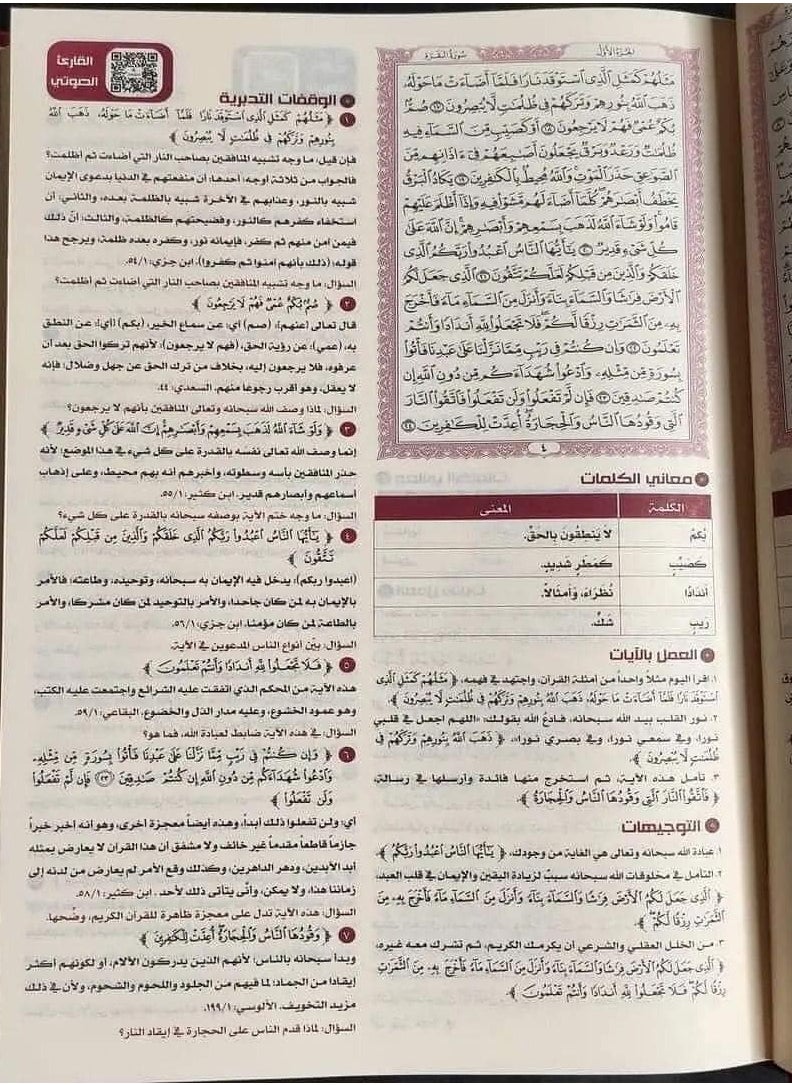 الجزء الأول
سورة البقرة
مَثَلُهُمْ كَمَثَلِ الَّذِي اسْتَوْقَدَ نَارًا فَلَمَّا أَضَاءَتْ مَا حَوْلَهُ
ذَهَبَ اللَّهُ بِنُورِهِمْ وَتَرَكَهُمْ فِي ظُلُمَاتٍ لَا يُبْصِرُونَ ١٧ صُمٌّ
بُكْمٌ عُمْيٌ فَهُمْ لَا يَرْجِعُونَ ١٨ أَوْ كَصَيِّبٍ مِنَ السَّمَاءِ فِيهِ
ظُلُمَاتٌ وَرَعْدٌ وَبَرْقٌ يَجْعَلُونَ أَصَابِعَهُمْ فِي آذَانِهِمْ مِنَ
الصَّوَاعِقِ حَذَرَ الْمَوْتِ وَاللَّهُ مُحِيطٌ بِالْكَافِرِينَ ١٩ يَكَادُ الْبَرْقُ
يَخْطَفُ أَبْصَارَهُمْ كُلَّمَا أَضَاءَ لَهُمْ مَشَوْا فِيهِ وَإِذَا أَظْلَمَ عَلَيْهِمْ
قَامُوا وَلَوْ شَاءَ اللَّهُ لَذَهَبَ بِسَمْعِهِمْ وَأَبْصَارِهِمْ إِنَّ اللَّهَ عَلَى
كُلِّ شَيْءٍ قَدِيرٌ ٢٠ يَا أَيُّهَا النَّاسُ اعْبُدُوا رَبَّكُمُ الَّذِي
خَلَقَكُمْ وَالَّذِينَ مِنْ قَبْلِكُمْ لَعَلَّكُمْ تَتَّقُونَ ٢١ الَّذِي جَعَلَ لَكُمُ
الْأَرْضَ فِرَاشًا وَالسَّمَاءَ بِنَاءً وَأَنْزَلَ مِنَ السَّمَاءِ مَاءً فَأَخْرَجَ
بِهِ مِنَ الثَّمَرَاتِ رِزْقًا لَكُمْ فَلَا تَجْعَلُوا لِلَّهِ أَنْدَادًا وَأَنْتُمْ
تَعْلَمُونَ ٢٢ وَإِنْ كُنْتُمْ فِي رَيْبٍ مِمَّا نَزَّلْنَا عَلَى عَبْدِنَا فَأْتُوا
بِسُورَةٍ مِنْ مِثْلِهِ وَادْعُوا شُهَدَاءَكُمْ مِنْ دُونِ اللَّهِ إِنْ
كُنْتُمْ صَادِقِينَ ٢٣ فَإِنْ لَمْ تَفْعَلُوا وَلَنْ تَفْعَلُوا فَاتَّقُوا النَّارَ
الَّتِي وَقُودُهَا النَّاسُ وَالْحِجَارَةُ أُعِدَّتْ لِلْكَافِرِينَ ٢٤
٤
معاني الكلمات
الكلمة المعنى
بُكْمٌ لاَ يَنطِقُونَ بِالحَقِّ.
كَصَيِّبٍ كَمَطَرٍ شَدِيدٍ.
أَندَادًا نُظَرَاءَ، وَأَمثَالاً.
رَيبٍ شَكٍّ.
العمل بالآيات
١. اقرأ اليوم مثلاً واحداً من أمثلة القرآن، واجتهد في فهمه، ﴿ مَثَلُهُمْ كَمَثَلِ الَّذِي
اسْتَوْقَدَ نَارًا فَلَمَّا أَضَاءَتْ مَا حَوْلَهُ ذَهَبَ اللَّهُ بِنُورِهِمْ وَتَرَكَهُمْ فِي ظُلُمَاتٍ لَا يُبْصِرُونَ ﴾.
٢. نور القلب بيد الله سبحانه، فادعُ الله بقولك: «اللهم اجعل في قلبي
نورا، وفي سمعي نورا، وفي بصري نورا»، ﴿ ذَهَبَ اللَّهُ بِنُورِهِمْ وَتَرَكَهُمْ فِي
ظُلُمَاتٍ لَا يُبْصِرُونَ ﴾.
٣. تأمل هذه الآية، ثم استخرج منها فائدة وأرسلها في رسالة،
﴿ فَاتَّقُوا النَّارَ الَّتِي وَقُودُهَا النَّاسُ وَالْحِجَارَةُ ﴾.
التوجيهات
١. عبادة الله سبحانه وتعالى هي الغاية من وجودك، ﴿ يَا أَيُّهَا النَّاسُ اعْبُدُوا رَبَّكُمُ ﴾.
٢. التأمل في مخلوقات الله سبحانه سببٌ لزيادة اليقين والإيمان في قلب العبد،
﴿ الَّذِي جَعَلَ لَكُمُ الْأَرْضَ فِرَاشًا وَالسَّمَاءَ بِنَاءً وَأَنْزَلَ مِنَ السَّمَاءِ مَاءً فَأَخْرَجَ بِهِ مِنَ
الثَّمَرَاتِ رِزْقًا لَكُمْ ﴾
٣. من الخلل العقلي والشرعي أن يكرمك الكريم، ثم تشرك معه غيره،
﴿ الَّذِي جَعَلَ لَكُمُ الْأَرْضَ فِرَاشًا وَالسَّمَاءَ بِنَاءً وَأَنْزَلَ مِنَ السَّمَاءِ مَاءً فَأَخْرَجَ بِهِ مِنَ الثَّمَرَاتِ
رِزْقًا لَكُمْ فَلَا تَجْعَلُوا لِلَّهِ أَنْدَادًا وَأَنْتُمْ تَعْلَمُونَ ﴾.
القارئ
الصوتي
الوقفات التدبرية
١ ﴿ مَثَلُهُمْ كَمَثَلِ الَّذِي اسْتَوْقَدَ نَارًا فَلَمَّا أَضَاءَتْ مَا حَوْلَهُ ذَهَبَ اللَّهُ
بِنُورِهِمْ وَتَرَكَهُمْ فِي ظُلُمَاتٍ لَا يُبْصِرُونَ ﴾
فإن قيل: ما وجه تشبيه المنافقين بصاحب النار التي أضاءت ثم أظلمت؟
فالجواب من ثلاثة أوجه: أحدها: أن منفعتهم في الدنيا بدعوى الإيمان
شبيه بالنور، وعذابهم في الآخرة شبيه بالظلمة بعده، والثاني: أن
استخفاء كفرهم كالنور، وفضيحتهم كالظلمة، والثالث: أنّ ذلك
فيمن آمن منهم ثم كفر، فإيمانه نور، وكفره بعده ظلمة، ويرجح هذا
قوله: (ذلك بأنهم آمنوا ثم كفروا). ابن جزي: ٥٤/١.
السؤال: ما وجه تشبيه المنافقين بصاحب النار التي أضاءت ثم أظلمت؟
٢ ﴿ صُمٌّ بُكْمٌ عُمْيٌ فَهُمْ لَا يَرْجِعُونَ ﴾
قال تعالى (عنهم): (صم) أي: عن سماع الخير، (بكم) [أي]: عن النطق
به، (عمي): عن رؤية الحق، (فهم لا يرجعون): لأنهم تركوا الحق بعد أن
عرفوه، فلا يرجعون إليه، بخلاف من ترك الحق عن جهل وضلال؛ فإنه
لا يعقل، وهو أقرب رجوعاً منهم. السعدي: ٤٤.
السؤال: لماذا وصف الله سبحانه وتعالى المنافقين بأنهم لا يرجعون؟
٣ ﴿ وَلَوْ شَاءَ اللَّهُ لَذَهَبَ بِسَمْعِهِمْ وَأَبْصَارِهِمْ إِنَّ اللَّهَ عَلَى كُلِّ شَيْءٍ قَدِيرٌ ﴾
إنما وصف الله تعالى نفسه بالقدرة على كل شيء في هذا الموضع؛ لأنه
حذر المنافقين بأسه وسطوته، وأخبرهم أنه بهم محيط، وعلى إذهاب
أسماعهم وأبصارهم قدير. ابن كثير: ٥٥/١.
السؤال: ما وجه ختم الآية بوصفه سبحانه بالقدرة على كل شيء؟
٤ ﴿ يَا أَيُّهَا النَّاسُ اعْبُدُوا رَبَّكُمُ الَّذِي خَلَقَكُمْ وَالَّذِينَ مِنْ قَبْلِكُمْ لَعَلَّكُمْ
تَتَّقُونَ ﴾
(اعبدوا ربكم): يدخل فيه الإيمان به سبحانه، وتوحيده، وطاعته؛ فالأمر
بالإيمان به لمن كان جاحدا، والأمر بالتوحيد لمن كان مشركا، والأمر
بالطاعة لمن كان مؤمنا. ابن جزي: ٥٦/١.
السؤال: بيّن أنواع الناس المدعوين في الآية.
٥ ﴿ فَلَا تَجْعَلُوا لِلَّهِ أَنْدَادًا وَأَنْتُمْ تَعْلَمُونَ ﴾
هذه الآية من المحكم الذي اتفقت عليه الشرائع واجتمعت عليه الكتب،
وهو عمود الخشوع، وعليه مدار الذل والخضوع. البقاعي: ٥٩/١.
السؤال: في هذه الآية ضابط لعبادة الله، فما هو؟
٦ ﴿ وَإِنْ كُنْتُمْ فِي رَيْبٍ مِمَّا نَزَّلْنَا عَلَى عَبْدِنَا فَأْتُوا بِسُورَةٍ مِنْ مِثْلِهِ
وَادْعُوا شُهَدَاءَكُمْ مِنْ دُونِ اللَّهِ إِنْ كُنْتُمْ صَادِقِينَ ٢٣ فَإِنْ لَمْ تَفْعَلُوا
وَلَنْ تَفْعَلُوا ﴾
أي: ولن تفعلوا ذلك أبداً، وهذه أيضاً معجزة أخرى، وهو أنه أخبر خبراً
جازماً قاطعاً مقدماً غير خائف ولا مشفق أن هذا القرآن لا يعارض بمثله
أبد الآبدين، ودهر الداهرين، وكذلك وقع الأمر لم يعارض من لدنه إلى
زماننا هذا، ولا يمكن، وأنّى يتأتى ذلك لأحد. ابن كثير: ٥٨/١.
السؤال: هذه الآية تدل على معجزة ظاهرة للقرآن الكريم، وضّحها.
٧ ﴿ وَقُودُهَا النَّاسُ وَالْحِجَارَةُ أُعِدَّتْ لِلْكَافِرِينَ ﴾
وبدأ سبحانه بالناس؛ لأنهم الذين يدركون الآلام، أو لكونهم أكثر
إيقادا من الجماد؛ لما فيهم من الجلود واللحوم والشحوم، ولأن في ذلك
مزيد التخويف. الألوسي: ١٩٩/١.
السؤال: لماذا قدم الناس على الحجارة في إيقاد النار؟